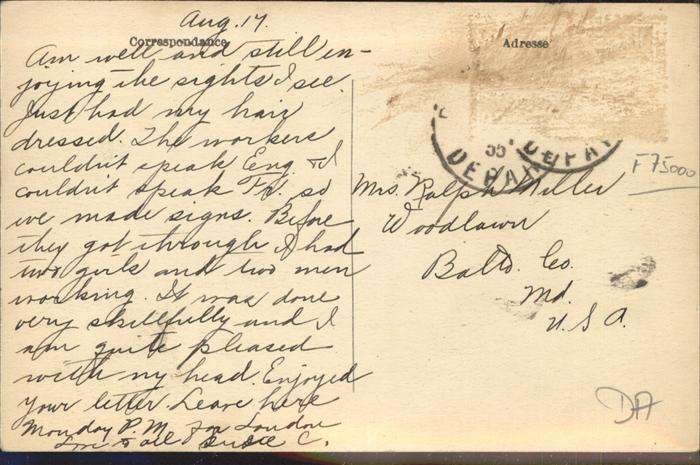 Aug. 17.
Correspondance
Adresse
Am well and still en-
joying the sights I see.
Just had my hair
dressed. The workers
couldn't speak Eng & I
couldn't speak Fr. so
we made signs. Before
they got through I had
two girls and two men
working. It was done
very skillfully and I
am quite pleased
with my head. Enjoyed
your letter. Leave here
Monday P.M. for London
Love to all Susie C.
DEPART
DEPAR
F75000
Mrs. Ralph Miller
Woodlawn
Balto. Co.
Md.
U.S.A.
DA